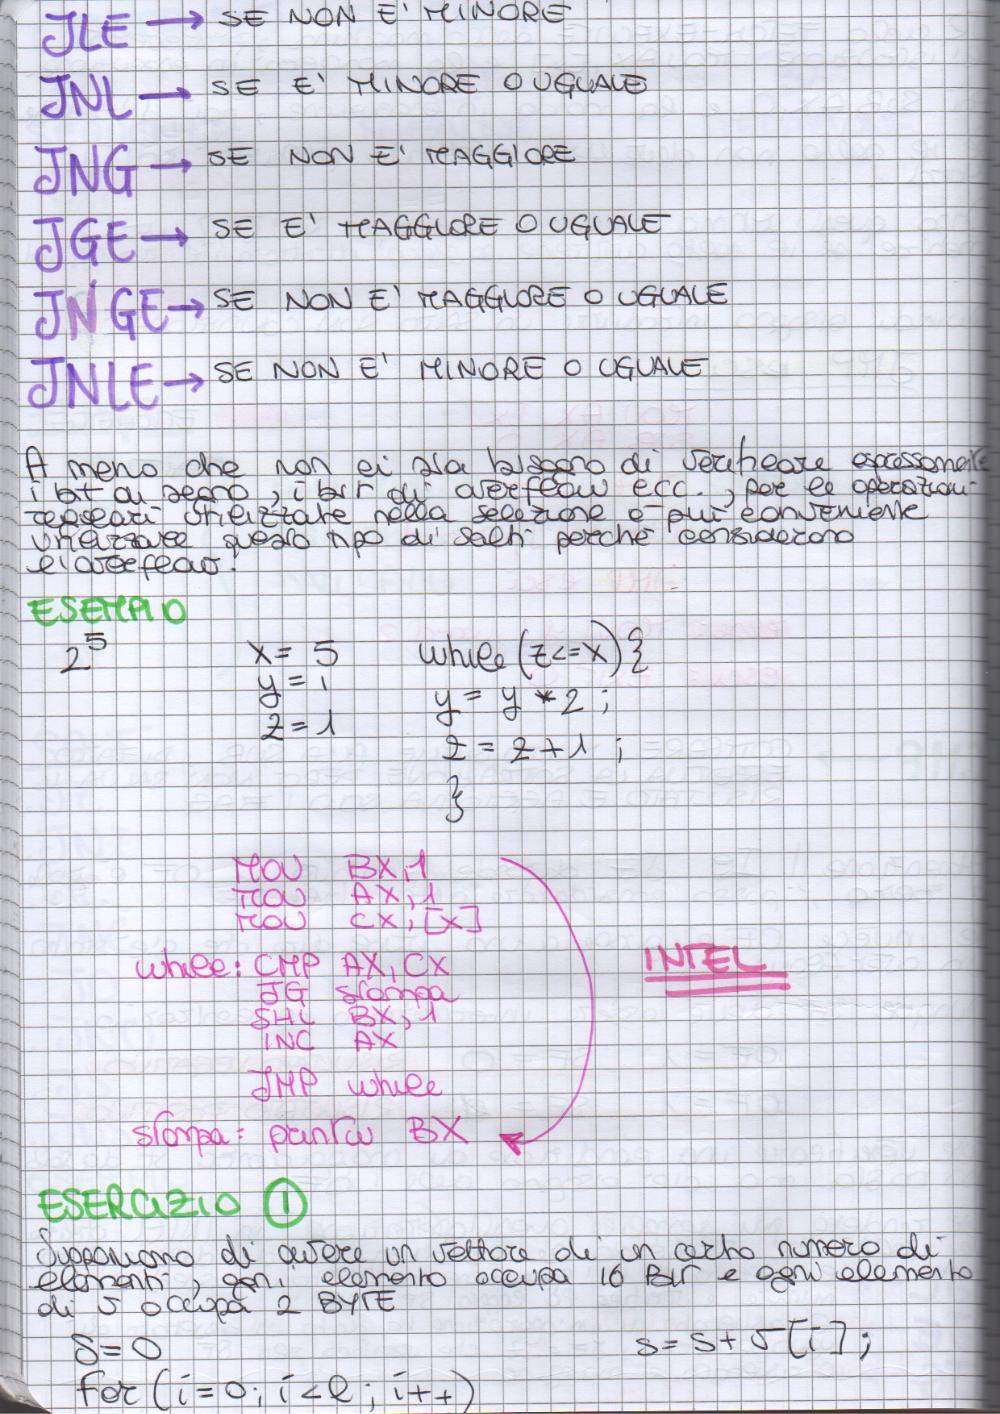 JLE → SE NON E' MINORE
JNL → SE E' MINORE O UGUALE
JNG → SE NON E' MAGGIORE
JGE → SE E' MAGGIORE O UGUALE
JNGE → SE NON E' MAGGIORE O UGUALE
JNLE → SE NON E' MINORE O UGUALE
A meno che non ci sia bisogno di verificare espressamente
i bit di segno, i bit di overflow ecc., per le operazioni
regolari utilizzate nella selezione è più conveniente
utilizzare questo tipo di salti perché considerano
l'overflow.
ESEMPIO
2^5 x = 5 while (z<=x) {
y = 1 y = y * 2 ;
z = 1 z = z + 1 ;
}
MOV BX,1
MOV AX,1
MOV CX,[x]
while: CMP AX,CX
JG stampa
SHL BX,1
INC AX
JMP while
stampa: BX
INTEL
ESERCIZIO 1
Supponiamo di avere un vettore di un certo numero di
elementi, ogni elemento occupa 16 BIT e ogni elemento
di v occupa 2 BYTE
S=0 s=s+v[i];
for (i=0; i<l; i++)